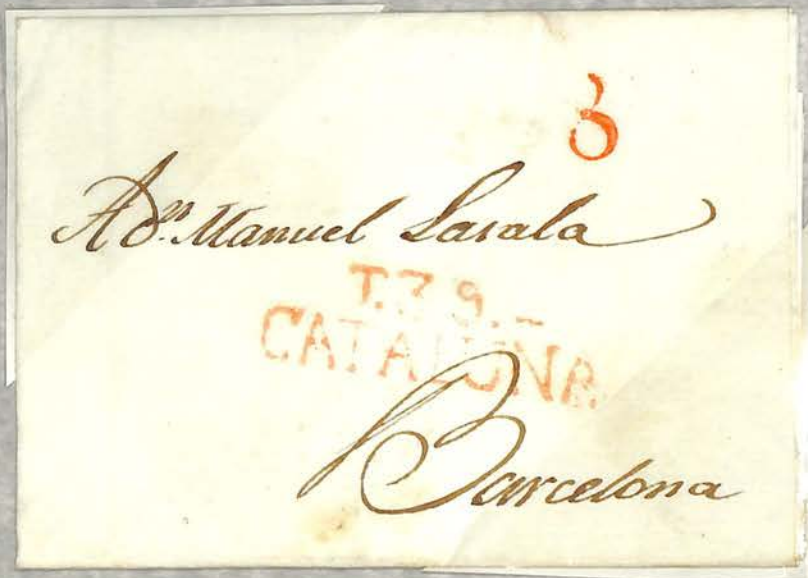 8
A dⁿ. Manuel Lasala
T. 7 9.
CATALUÑA
Barcelona